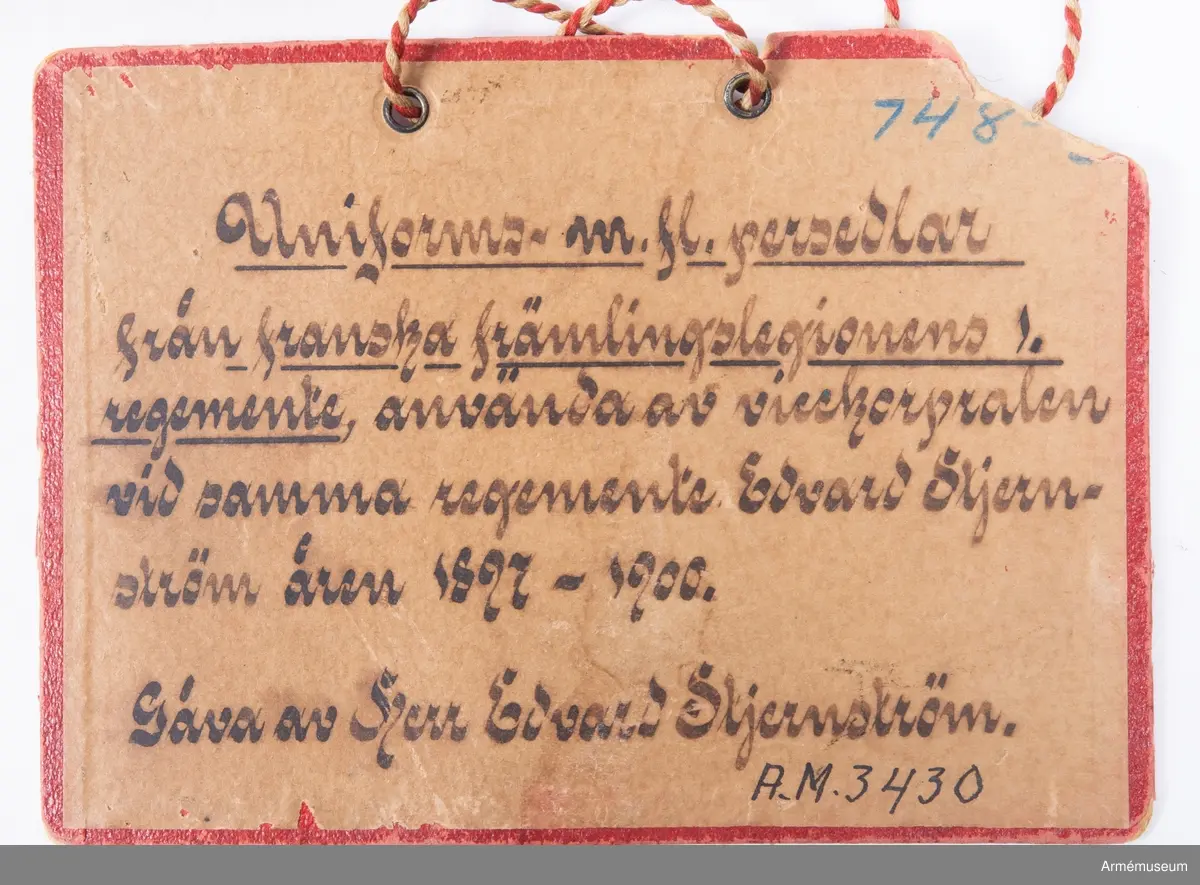 748-
Uniforms- m. fl. persedlar
från franska främlingslegionens 1.
regemente, använda av vicekorpralen
vid samma regemente Edvard Stjern-
ström åren 1897 - 1900.
Gåva av Herr Edvard Stjernström.
A.M. 3430
Armémuseum